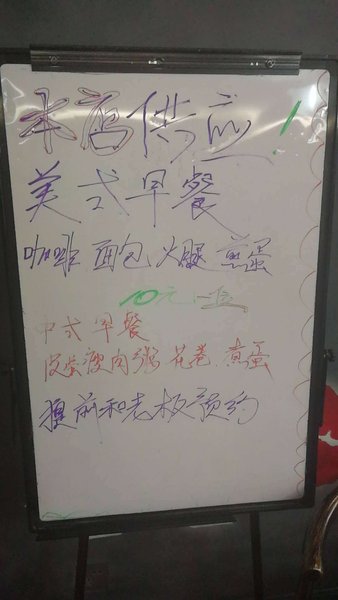 本店供应！
美式早餐
咖啡 面包 火腿 煎蛋
10元一位
中式早餐
皮蛋瘦肉粥 花卷 煮蛋
提前和老板预约